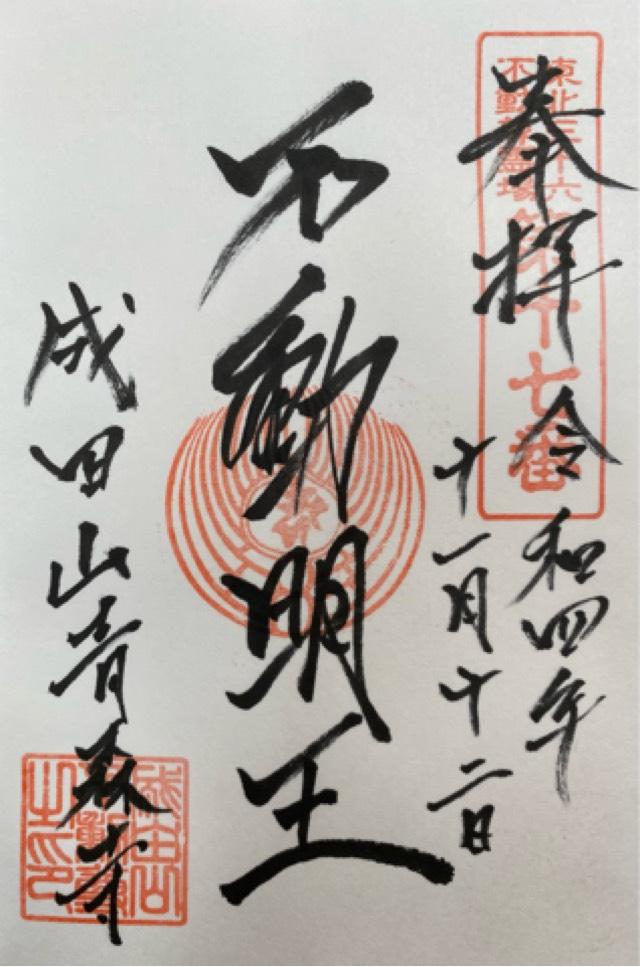 奉拝
東北三十六
不動尊霊場
第十七番
令和四年
十一月十二日
不動明王
成田山青森寺